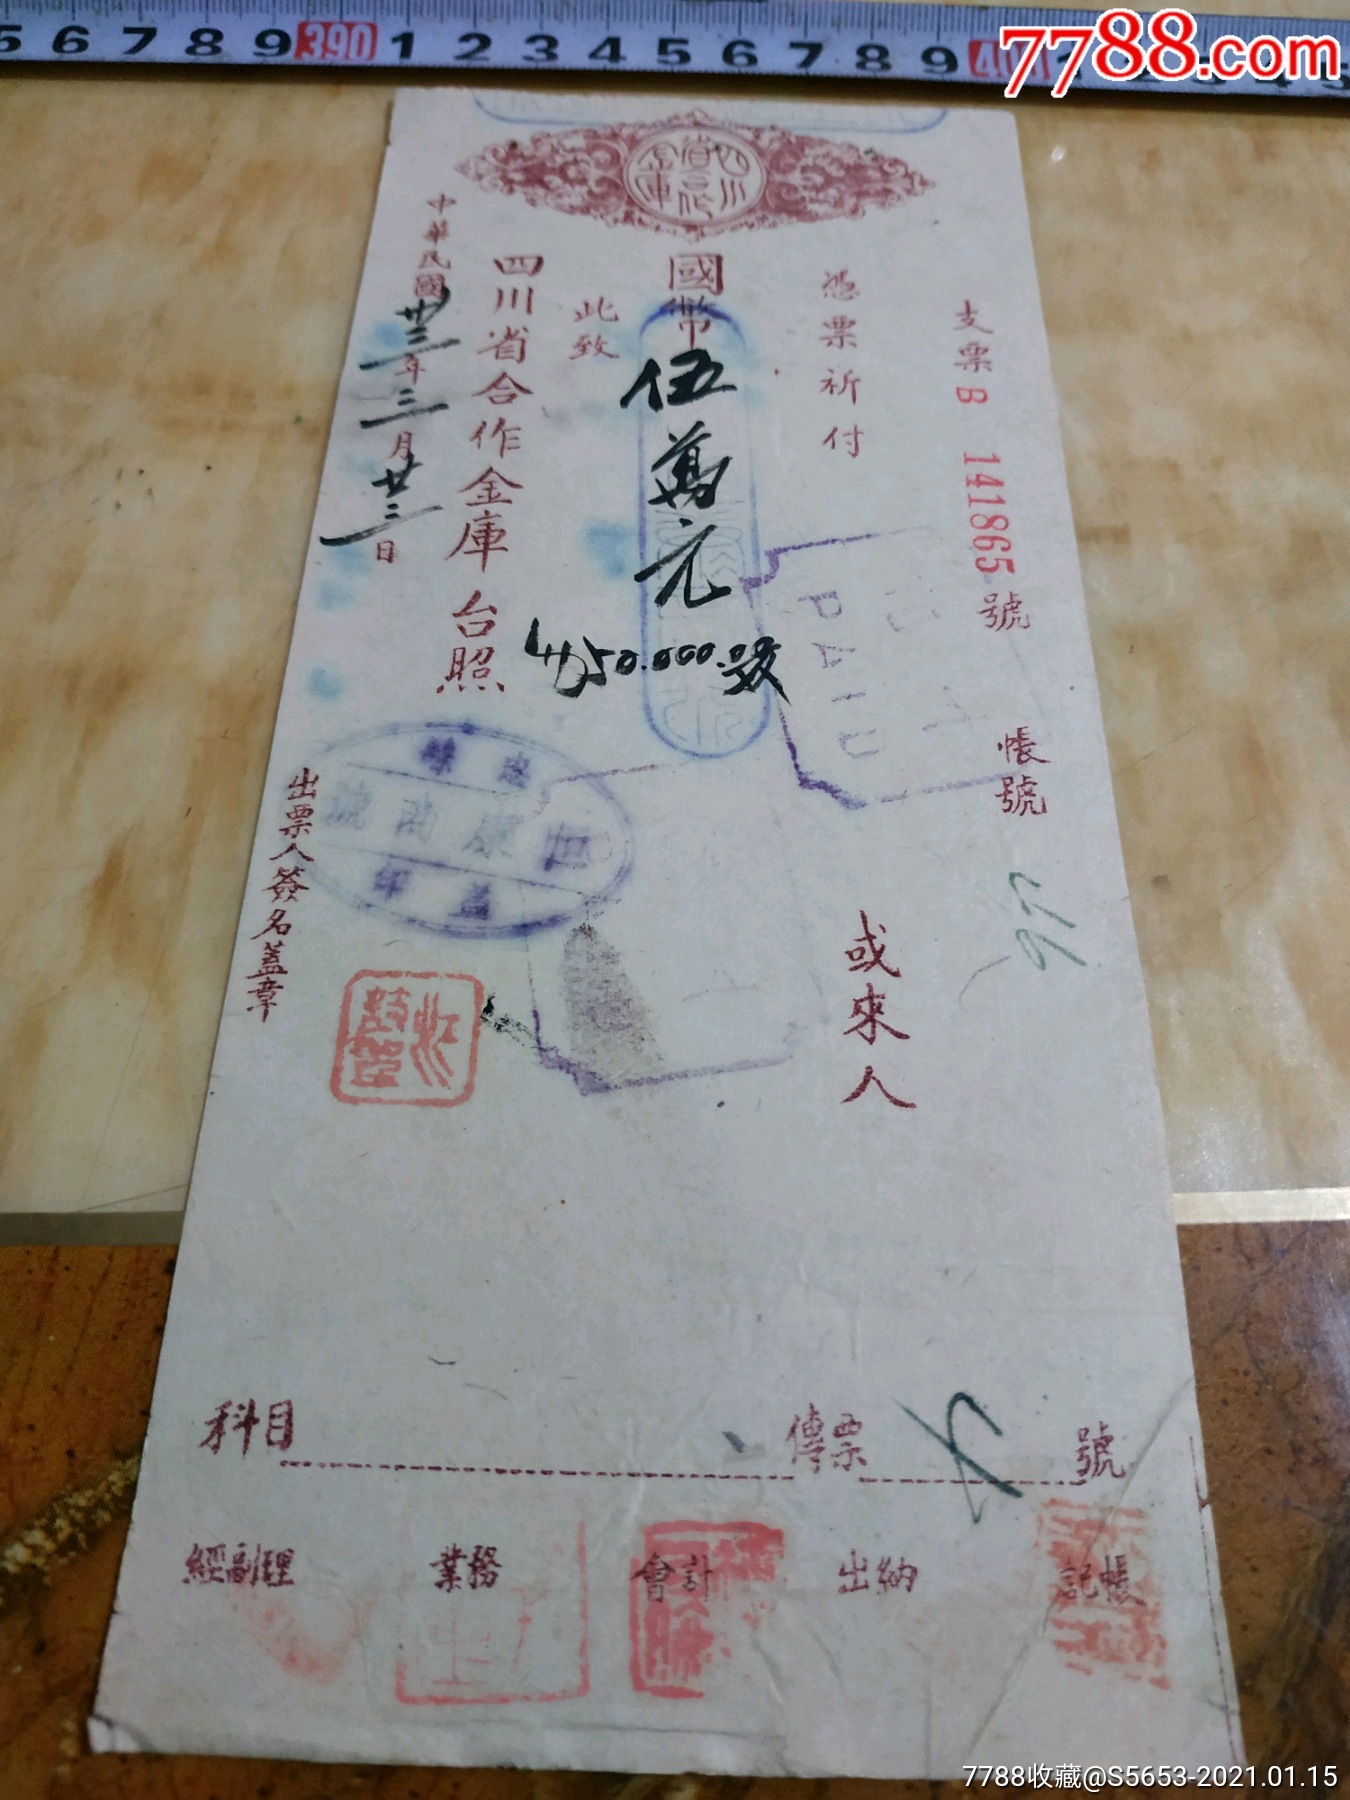 5 6 7 8 9 390 1 2 3 4 5 6 7 8 9
7788.com
四川省合作金庫
支票B 141865號
帳號
憑票祈付
或來人
國幣伍萬元
$50.000.00
此致
四川省合作金庫 台照
中華民國卅三年三月廿三日
出票人簽名蓋章
PAID
科目
傳票 號
經副理 業務 會計 出納 記帳
7788收藏@S5653-2021.01.15